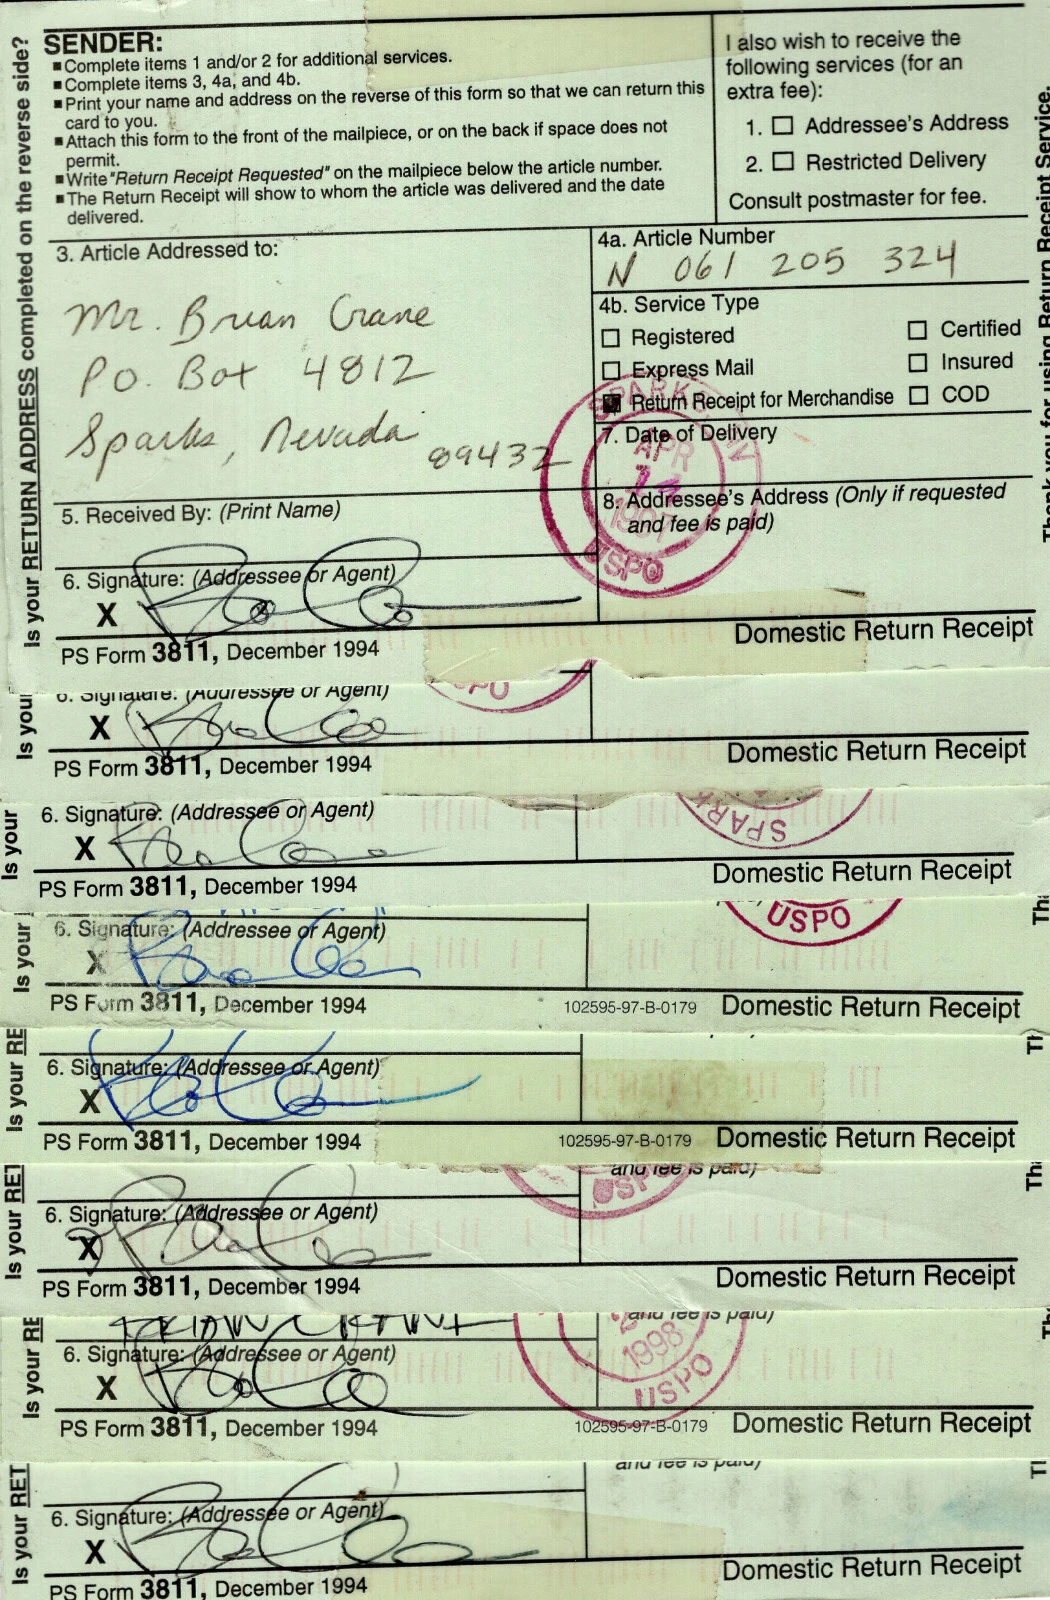 Is your RETURN ADDRESS completed on the reverse side?
SENDER:
■ Complete items 1 and/or 2 for additional services.
■ Complete items 3, 4a, and 4b.
■ Print your name and address on the reverse of this form so that we can return this
card to you.
■ Attach this form to the front of the mailpiece, or on the back if space does not
permit.
■ Write "Return Receipt Requested" on the mailpiece below the article number.
■ The Return Receipt will show to whom the article was delivered and the date
delivered.
I also wish to receive the
following services (for an
extra fee):
1. ☐ Addressee's Address
2. ☐ Restricted Delivery
Consult postmaster for fee.
3. Article Addressed to:
Mr. Brian Crane
P.O. Box 4812
Sparks, Nevada
89432
4a. Article Number
N 061 205 324
4b. Service Type
☐ Registered ☐ Certified
☐ Express Mail ☐ Insured
Return Receipt for Merchandise ☐ COD
7. Date of Delivery
SPARKS NV
APR
14
1997
USPO
5. Received By: (Print Name)
8. Addressee's Address (Only if requested
and fee is paid)
6. Signature: (Addressee or Agent)
X
PS Form 3811, December 1994
Domestic Return Receipt
Thank you for using Return Receipt Service.
Is your
6. Signature: (Addressee or Agent)
USPO
X
PS Form 3811, December 1994
Domestic Return Receipt
Is your
6. Signature: (Addressee or Agent)
SPARK
X
PS Form 3811, December 1994
Domestic Return Receipt
Is your
6. Signature: (Addressee or Agent)
USPO
X
PS Form 3811, December 1994
102595-97-B-0179 Domestic Return Receipt
Is your RE
6. Signature: (Addressee or Agent)
X
PS Form 3811, December 1994
102595-97-B-0179 Domestic Return Receipt
Is your RET
and fee is paid)
USPO
6. Signature: (Addressee or Agent)
X
PS Form 3811, December 1994
Domestic Return Receipt
Is your RE
BRIAN CRANE
and fee is paid)
1998
USPO
6. Signature: (Addressee or Agent)
X
PS Form 3811, December 1994
102595-97-B-0179 Domestic Return Receipt
Is your RET
and fee is paid)
6. Signature: (Addressee or Agent)
X
PS Form 3811, December 1994
Domestic Return Receipt